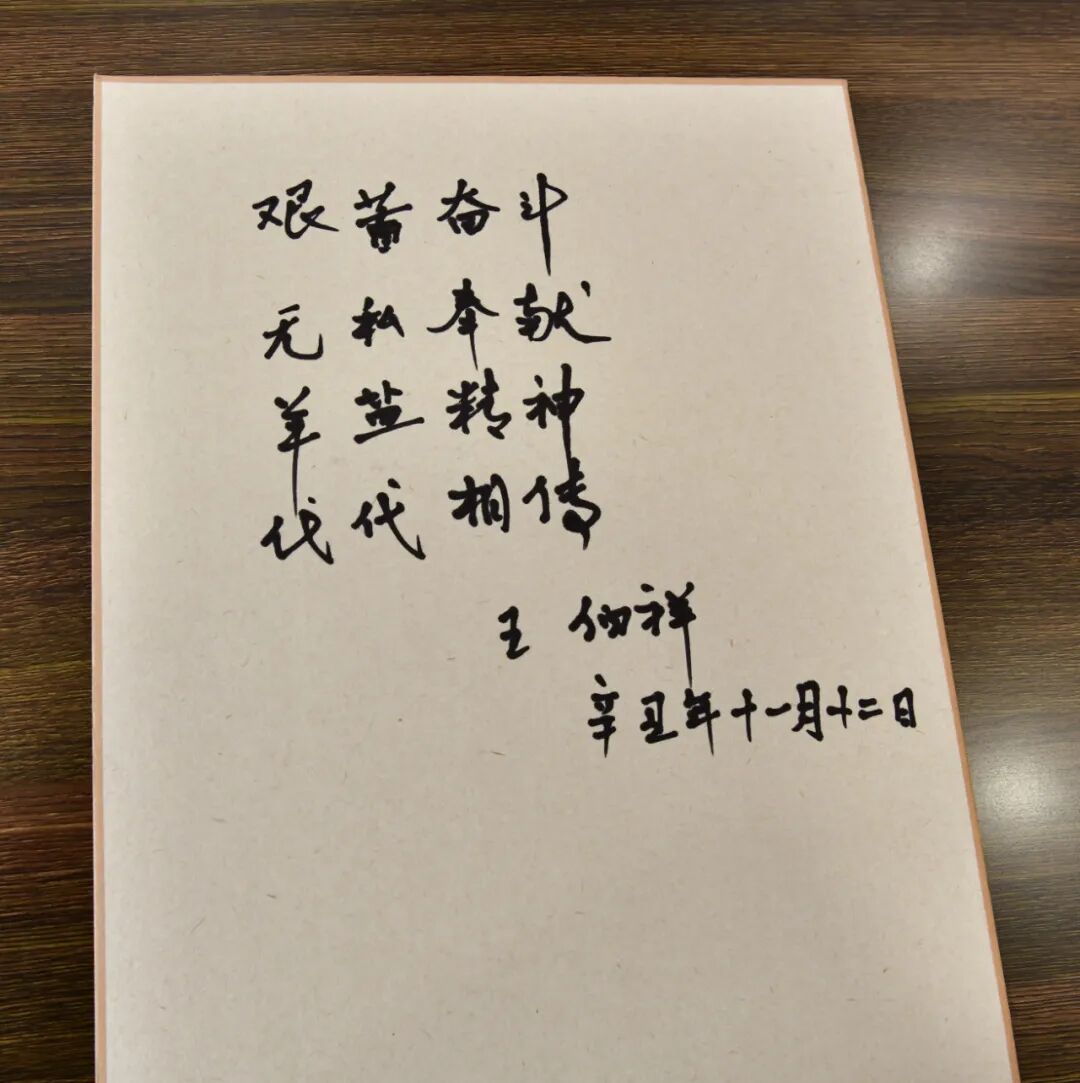 艰苦奋斗
无私奉献
羊盐精神
代代相传
王伯祥
辛丑年十一月十二日